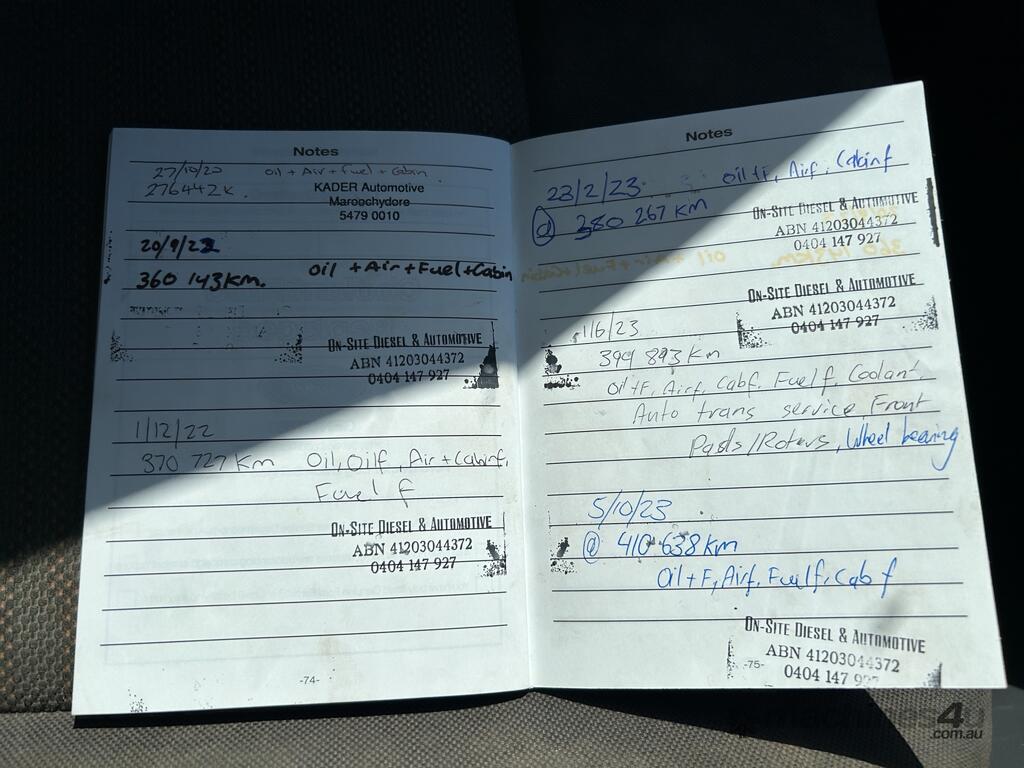 Notes
27/10/20 Oil + Air + Fuel + Cabin
276442K.
KADER Automotive
Maroochydore
5479 0010
20/9/22
360 143km. Oil + Air + Fuel + Cabin
ON-SITE DIESEL & AUTOMOTIVE
ABN 41203044372
0404 147 927
1/12/22
370 727 Km Oil, Oilf, Air + Cabinf,
Fuel f
ON-SITE DIESEL & AUTOMOTIVE
ABN 41203044372
0404 147 927
-74-
Notes
23/2/23 Oil+F, Airf, Cabinf
@ 380 267 KM
ON-SITE DIESEL & AUTOMOTIVE
ABN 41203044372
0404 147 927
ON-SITE DIESEL & AUTOMOTIVE
ABN 41203044372
0404 147 927
1/6/23
399 893 Km
Oil+F, Airf, Cabf, Fuelf, Coolant,
Auto trans service, Front
Pads/Rotors, Wheel bearing
5/10/23
@ 410 638 Km
Oil+F, Airf, Fuelf, Cabf
ON-SITE DIESEL & AUTOMOTIVE
ABN 41203044372
-75-
0404 147 927
machines4u
.com.au